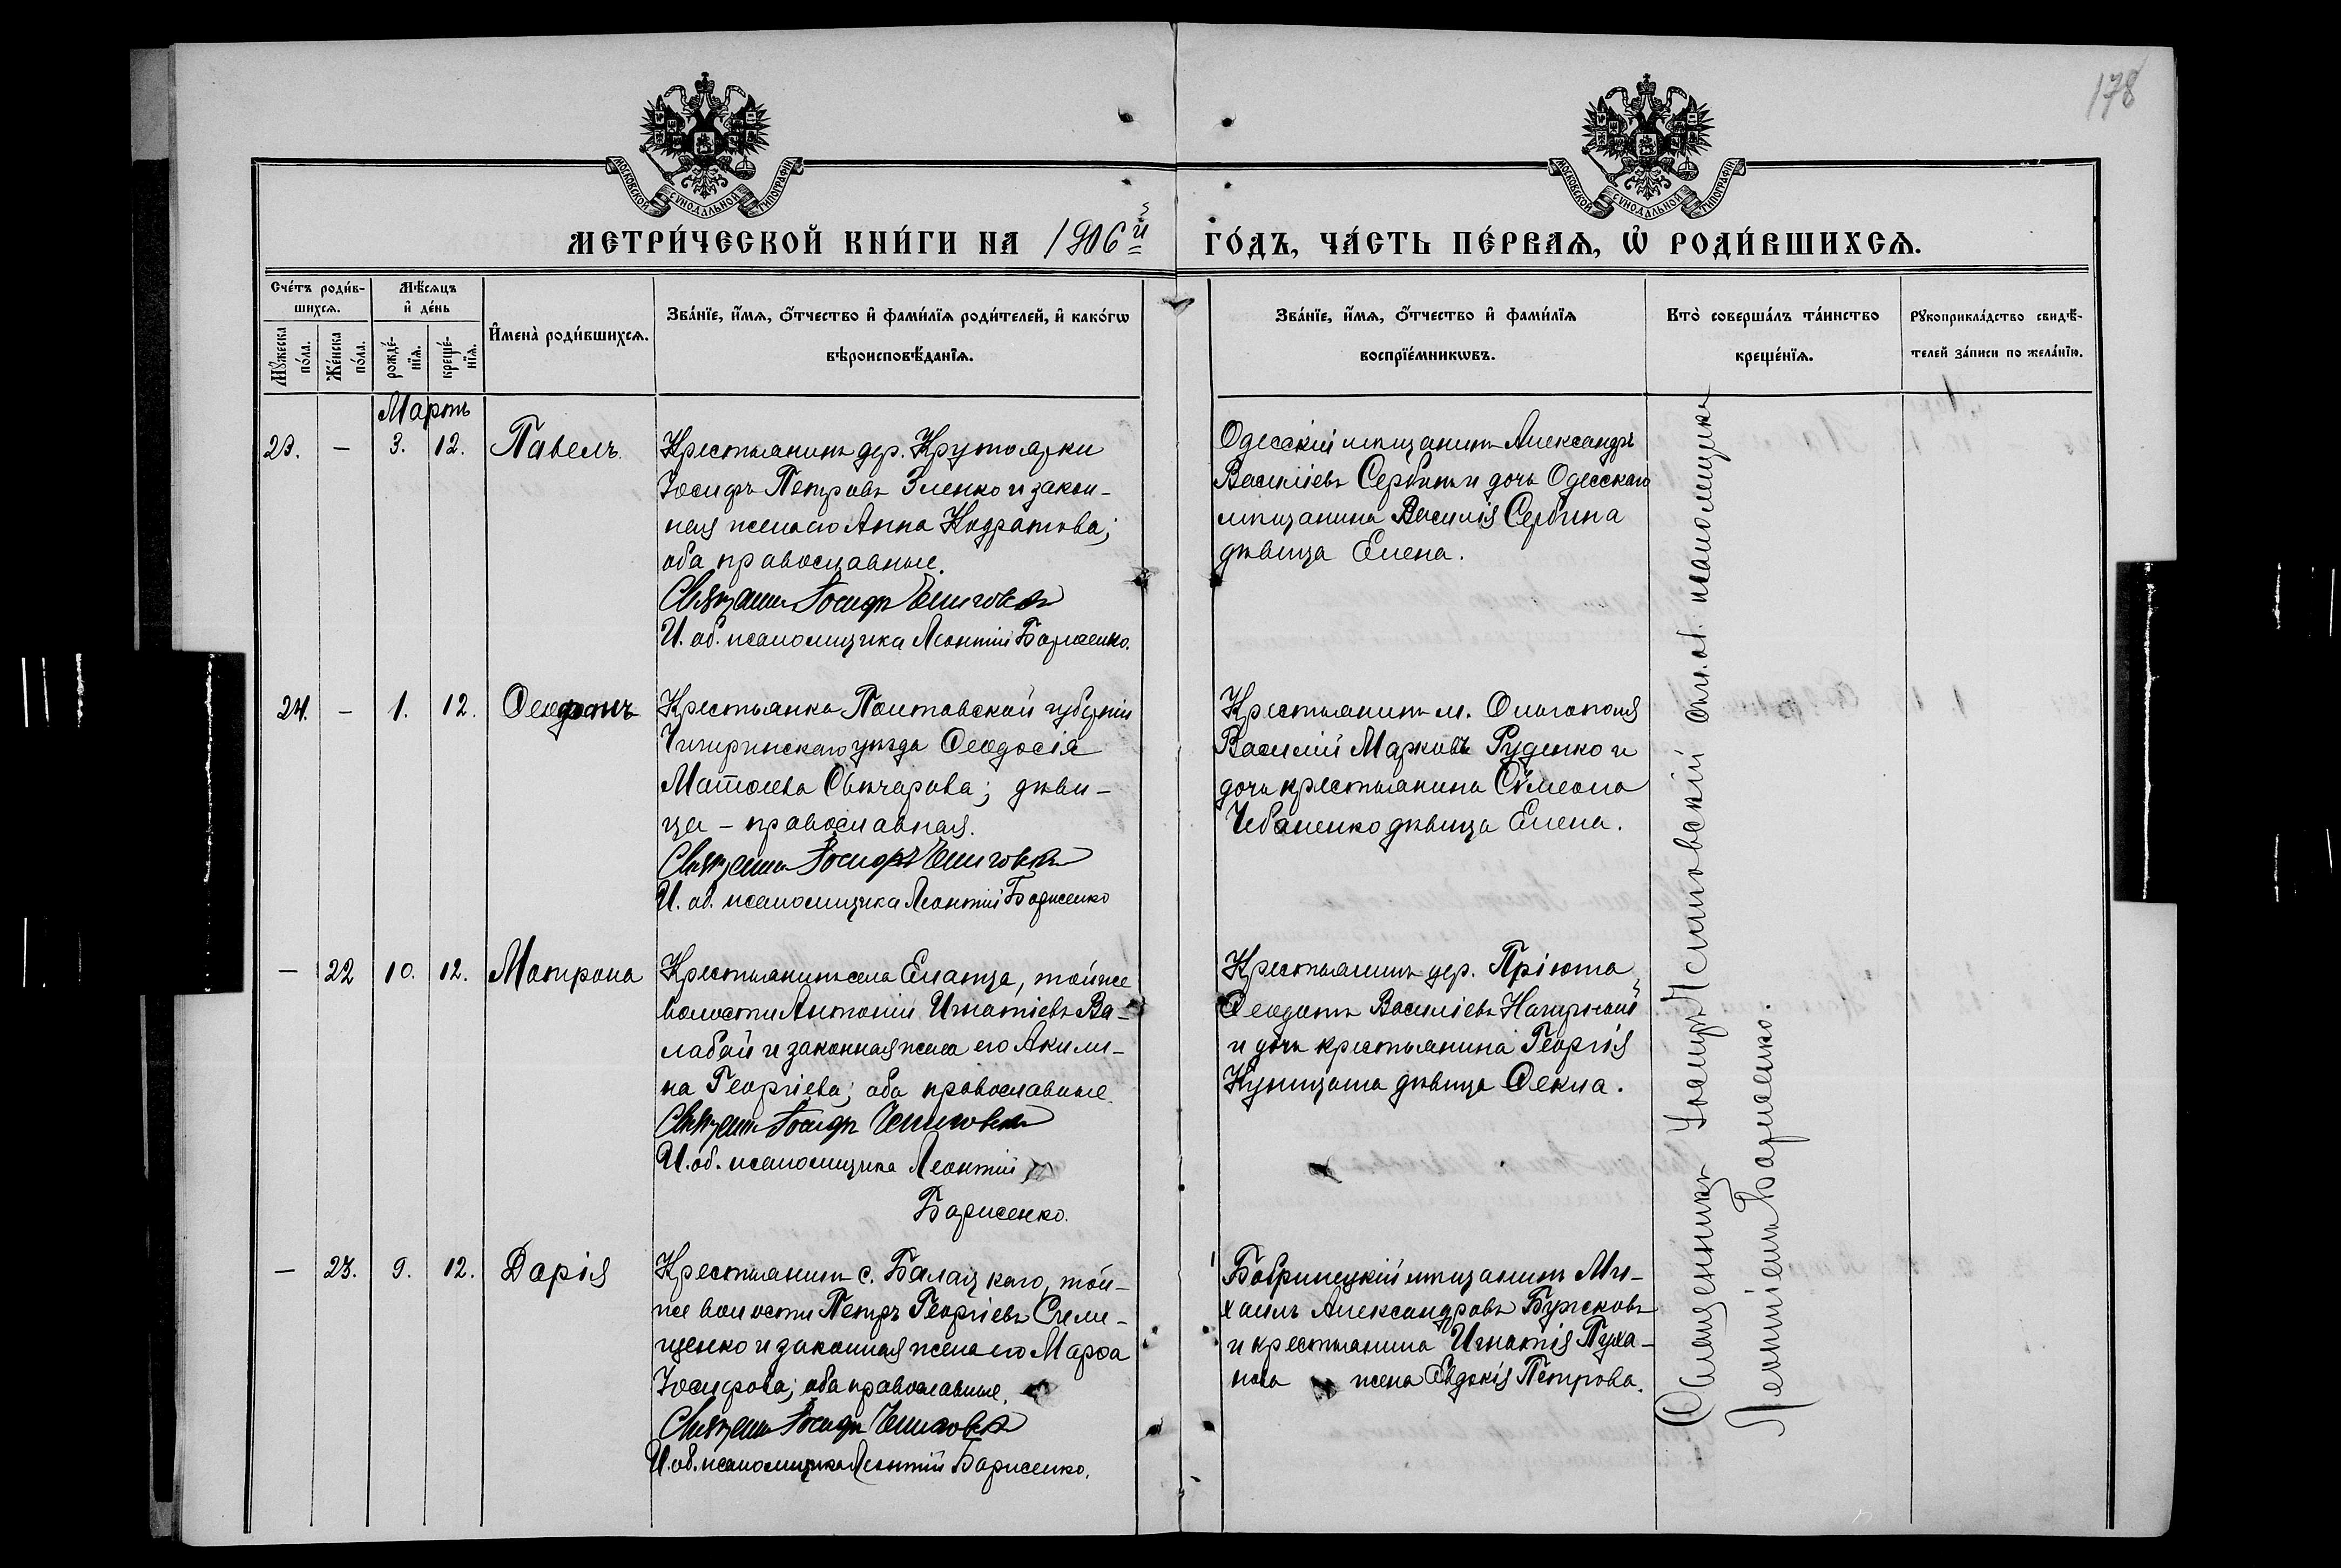 178
МОСКОВСКОЙ СѴНОДАЛЬНОЙ ТИПОГРАФІИ
МОСКОВСКОЙ СѴНОДАЛЬНОЙ ТИПОГРАФІИ
МЕТРИ́ЧЕСКОЙ КНИ́ГИ НА 1906й
ГО́ДЪ, ЧА́СТЬ ПЕ́РВАѦ, Ѽ РОДИ́ВШИХСѦ.
Сче́тъ роди́в-
шихсѧ.
Мѣ́сѧцъ
и҆ де́нь
Мꙋ́жеска
по́ла.
Же́нска
по́ла.
рожде́-
нїѧ.
креще́-
нїѧ.
И҆мена̀ роди́вшихсѧ.
Зва́нїе, и҆́мѧ, ѻ҆́тчество и҆ фами́лїѧ роди́телей, и҆ како́гѡ
вѣроисповѣ́данїѧ.
Зва́нїе, и҆́мѧ, ѻ҆́тчество и҆ фами́лїѧ
воспрїе́мникѡвъ.
Кто̀ соверша́лъ та́инство
креще́нїѧ.
Рꙋкоприкла́дство свидѣ́-
телей за́писи по жела́нїю.
Мартъ
23. — 3. 12. Павелъ.
Крестьянинъ дер. Крутоярки
Іосифъ Петровъ Зленко и закон-
ная жена его Анна Кодратова;
оба православные.
Священн. Іосифъ
И. об. псаломщика Леонтій Борисенко.
Одесскій мѣщанинъ Александръ
Васильевъ Сербинъ и дочь Одесскаго
мѣщанина Василія Сербина
дѣвица Елена.
24. — 1. 12. Ѳеофанъ
Крестьянка Полтавской губерніи
Чигиринскаго уѣзда Ѳеодосія
Матѳеева Овчарова; дѣви-
ца – православная.
Священн. Іосифъ
И. об. псаломщика Леонтій Борисенко
Крестьянинъ м. Ольгополя
Василій Марковъ Руденко и
дочь крестьянина Сѵмеона
Чебаненко дѣвица Елена.
— 22 10. 12. Матрона
Крестьянинъ села Еланца, той же
волости Антоній Игнатіевъ Ва-
лабай и законная жена его Акили-
на Георгіева; оба православные.
Священн. Іосифъ
И. об. псаломщика Леонтій
Борисенко.
Крестьянинъ дер. Пріюта
Ѳеодотъ Васильевъ Нагирный
и дочь крестьянина Георгія
дѣвица Ѳекла.
— 23. 9. 12. Дарія
Крестьянинъ с. Балацкаго, той-
же волости Петръ Георгіевъ Семе-
щенко и законная жена его Марѳа
Іосифова; оба православные.
Священн. Іосифъ
И. об. псаломщика Леонтій Борисенко.
Бобринецкій мѣщанинъ Ми-
хаилъ Александровъ Бужсковъ
и крестьянина Игнатія Пуха-
нова жена Евдокія Петрова.
Священникъ Іосифъ и. об. псаломщика
Леонтіемъ Борисенко.